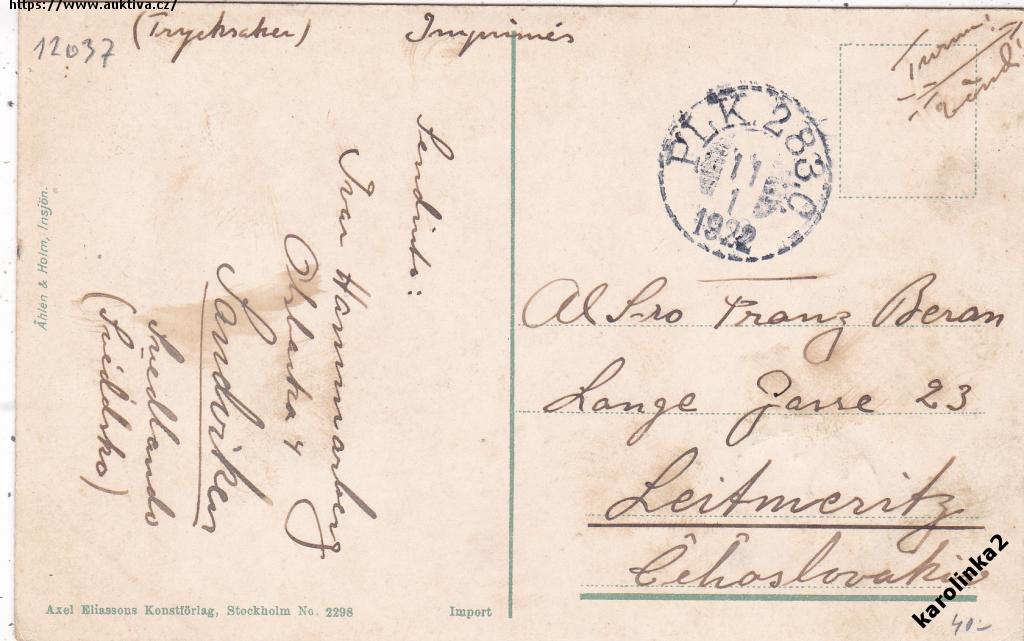 https://www.auktiva.cz/
12037
(Trycksaker) Imprimés
Turnu!
PLK. 283. C
11
1
1922
Sendinto:
Ivar Hammarberg
Orbacka 4
Sandviken
Svedlando
(Švédsko)
Al S-ro Franz Beran
Lange Gasse 23
Leitmeritz
Ĉeĥoslovakio
Åhlen & Holm, Insjön.
Axel Eliassons Konstförlag, Stockholm No. 2298
Import
karolinka2
40-